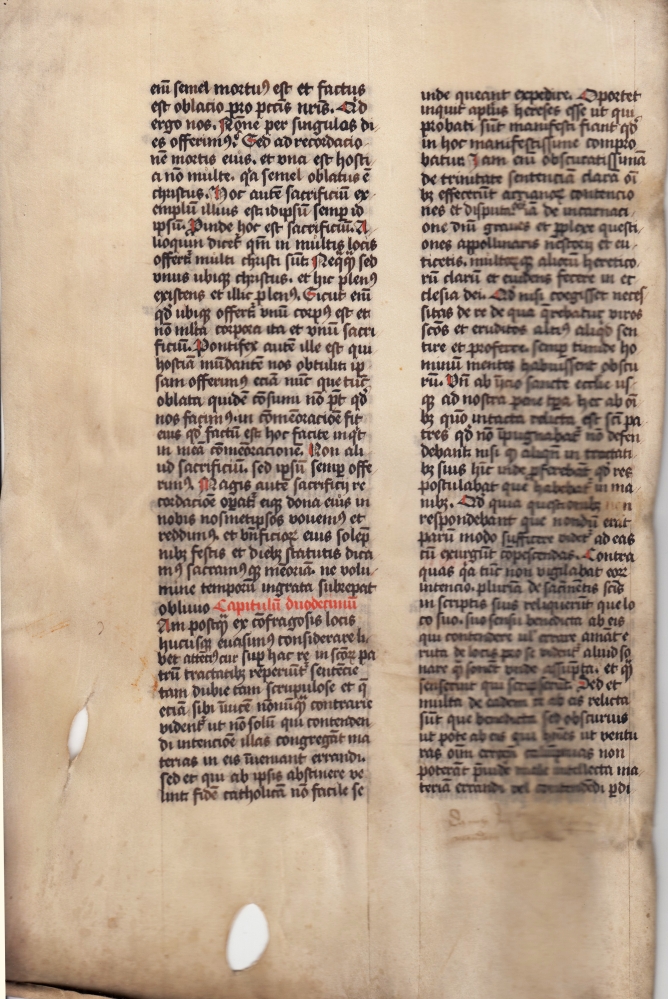 eni semel mortuꝰ est et factus
est oblacio pro pctis nris. Ad
ergo nos. Nōne per singulas di
es offerimꝰ: Sed ad recordacio
nē mortis eius. et vna est hosti
a nō multe. qa semel oblatus ē
christus. Hoc autē sacrificiū ex
emplū illius est: idipsū semp id
ipsū. Proinde hoc est sacrificiū. A
lioquin dicet qm̄ in multis locis
offert multi christi sūt: Neqꝙ sed
vnus ubiqꝫ christus. et hic plenꝰ
existens et illic plenꝰ. Sicut enī
qd ubiqꝫ offert vnū corpꝰ est et
nō mlta corpora ita et vnū sacri
ficiū. Pontifex autē ille est qui
hostiā mūdantē nos obtulit ip
sam offerimꝰ eciā nūc que tūc
oblata quidē cōsumi nō pt qd
nos facimꝰ. in cōmēoracionē fit
eius qd factū est hoc facite inqt
in meā cōmēoracionē. Non ali
ud sacrificiū. sed ipsū semp offe
rimꝰ. Magis autē sacrificij re
cordacionē opat eiqꝫ dona eius in
nobis nosmetipsos vouemꝰ et
reddimꝰ. et bnficioꝝ eius solēp
nibꝫ festis et diebꝫ statutis dica
mꝰ sacramꝰqꝫ mēoriā. ne volu
mine temporū ingrata subrepat
obliuio Capitulū duodecimū
Iam postqꝫ ex cōfragosis locis
hucusqꝫ euasimꝰ considerare li
bet sup hac re in scōꝝ pa
trū tractatibꝫ reperiūt sentēcie
tam dubie tam scrupulose et q̄
etiā sibi inuicē nōnūqꝫ contrarie
vident ut nō solū qui contenden
di intencione illas congregāt ma
terias in eis inueniant errandi.
sed et qui ab ipsis abstinere ve
lint fidē catholicā nō facile se
inde queant expedire. Oportet
inquit aplus hereses esse ut qui
probati sūt manifesti fiant qd
in hoc manifestissime compro
batur. Iam eni obscuratissimā
de trinitate sentenciā clarā oī
bꝫ effecerūt arrianoꝝ contencio
nes et disputa de incarnaci
one dn̄i graues et pplexe questi
ones appollinaris nestorij et eu
ticetis. multoꝝqꝫ alioꝝ heretico
rū clarū et euidens fecere in ec
clesia dei. Ad nisi coegisset neces
sitas de re de qua qrebatur viros
scōs et eruditos altiꝰ aliqd sen
tire et proferre. semp timide ho
minū mentes habuissent obscu
rū. Vn̄ ab inicio sancte ecclie us
qꝫ ad nostra pene tpa hec ab oī
bꝫ quo intacta relicta est scī pa
tres qd nō īpugnabat nō defen
debant nisi qꝫ aliqn in tractati
bꝫ suis hic inde pferebāt qd res
postulabat que habebat in ma
nibꝫ. Ad quia questionibꝫ non
respondebant que nondū erāt
parū modo sufficere videt ad eas
cū exurgūt copescendas. Contra
quas qa tūc non vigilabat eoꝝ
intencio. pluria de sacmētis scis
in scriptis suis reliquerūt que lo
co suo. suo sensu benedicta ab eis
qui contendere ul errare amāt e
ruta de locis pro se vident aliud so
nare q sonēt unde assūpta. et qꝫ
senserint qui scripserūt. Sed et
multa de eadem re ab eis relicta
sūt que benedicta sed obscurius
ut pote ab eis qui hoīes ut ventu
ras oīm calūpnias non
poterāt pinde male intellecta ma
teria errandi vel contendēdi pdi